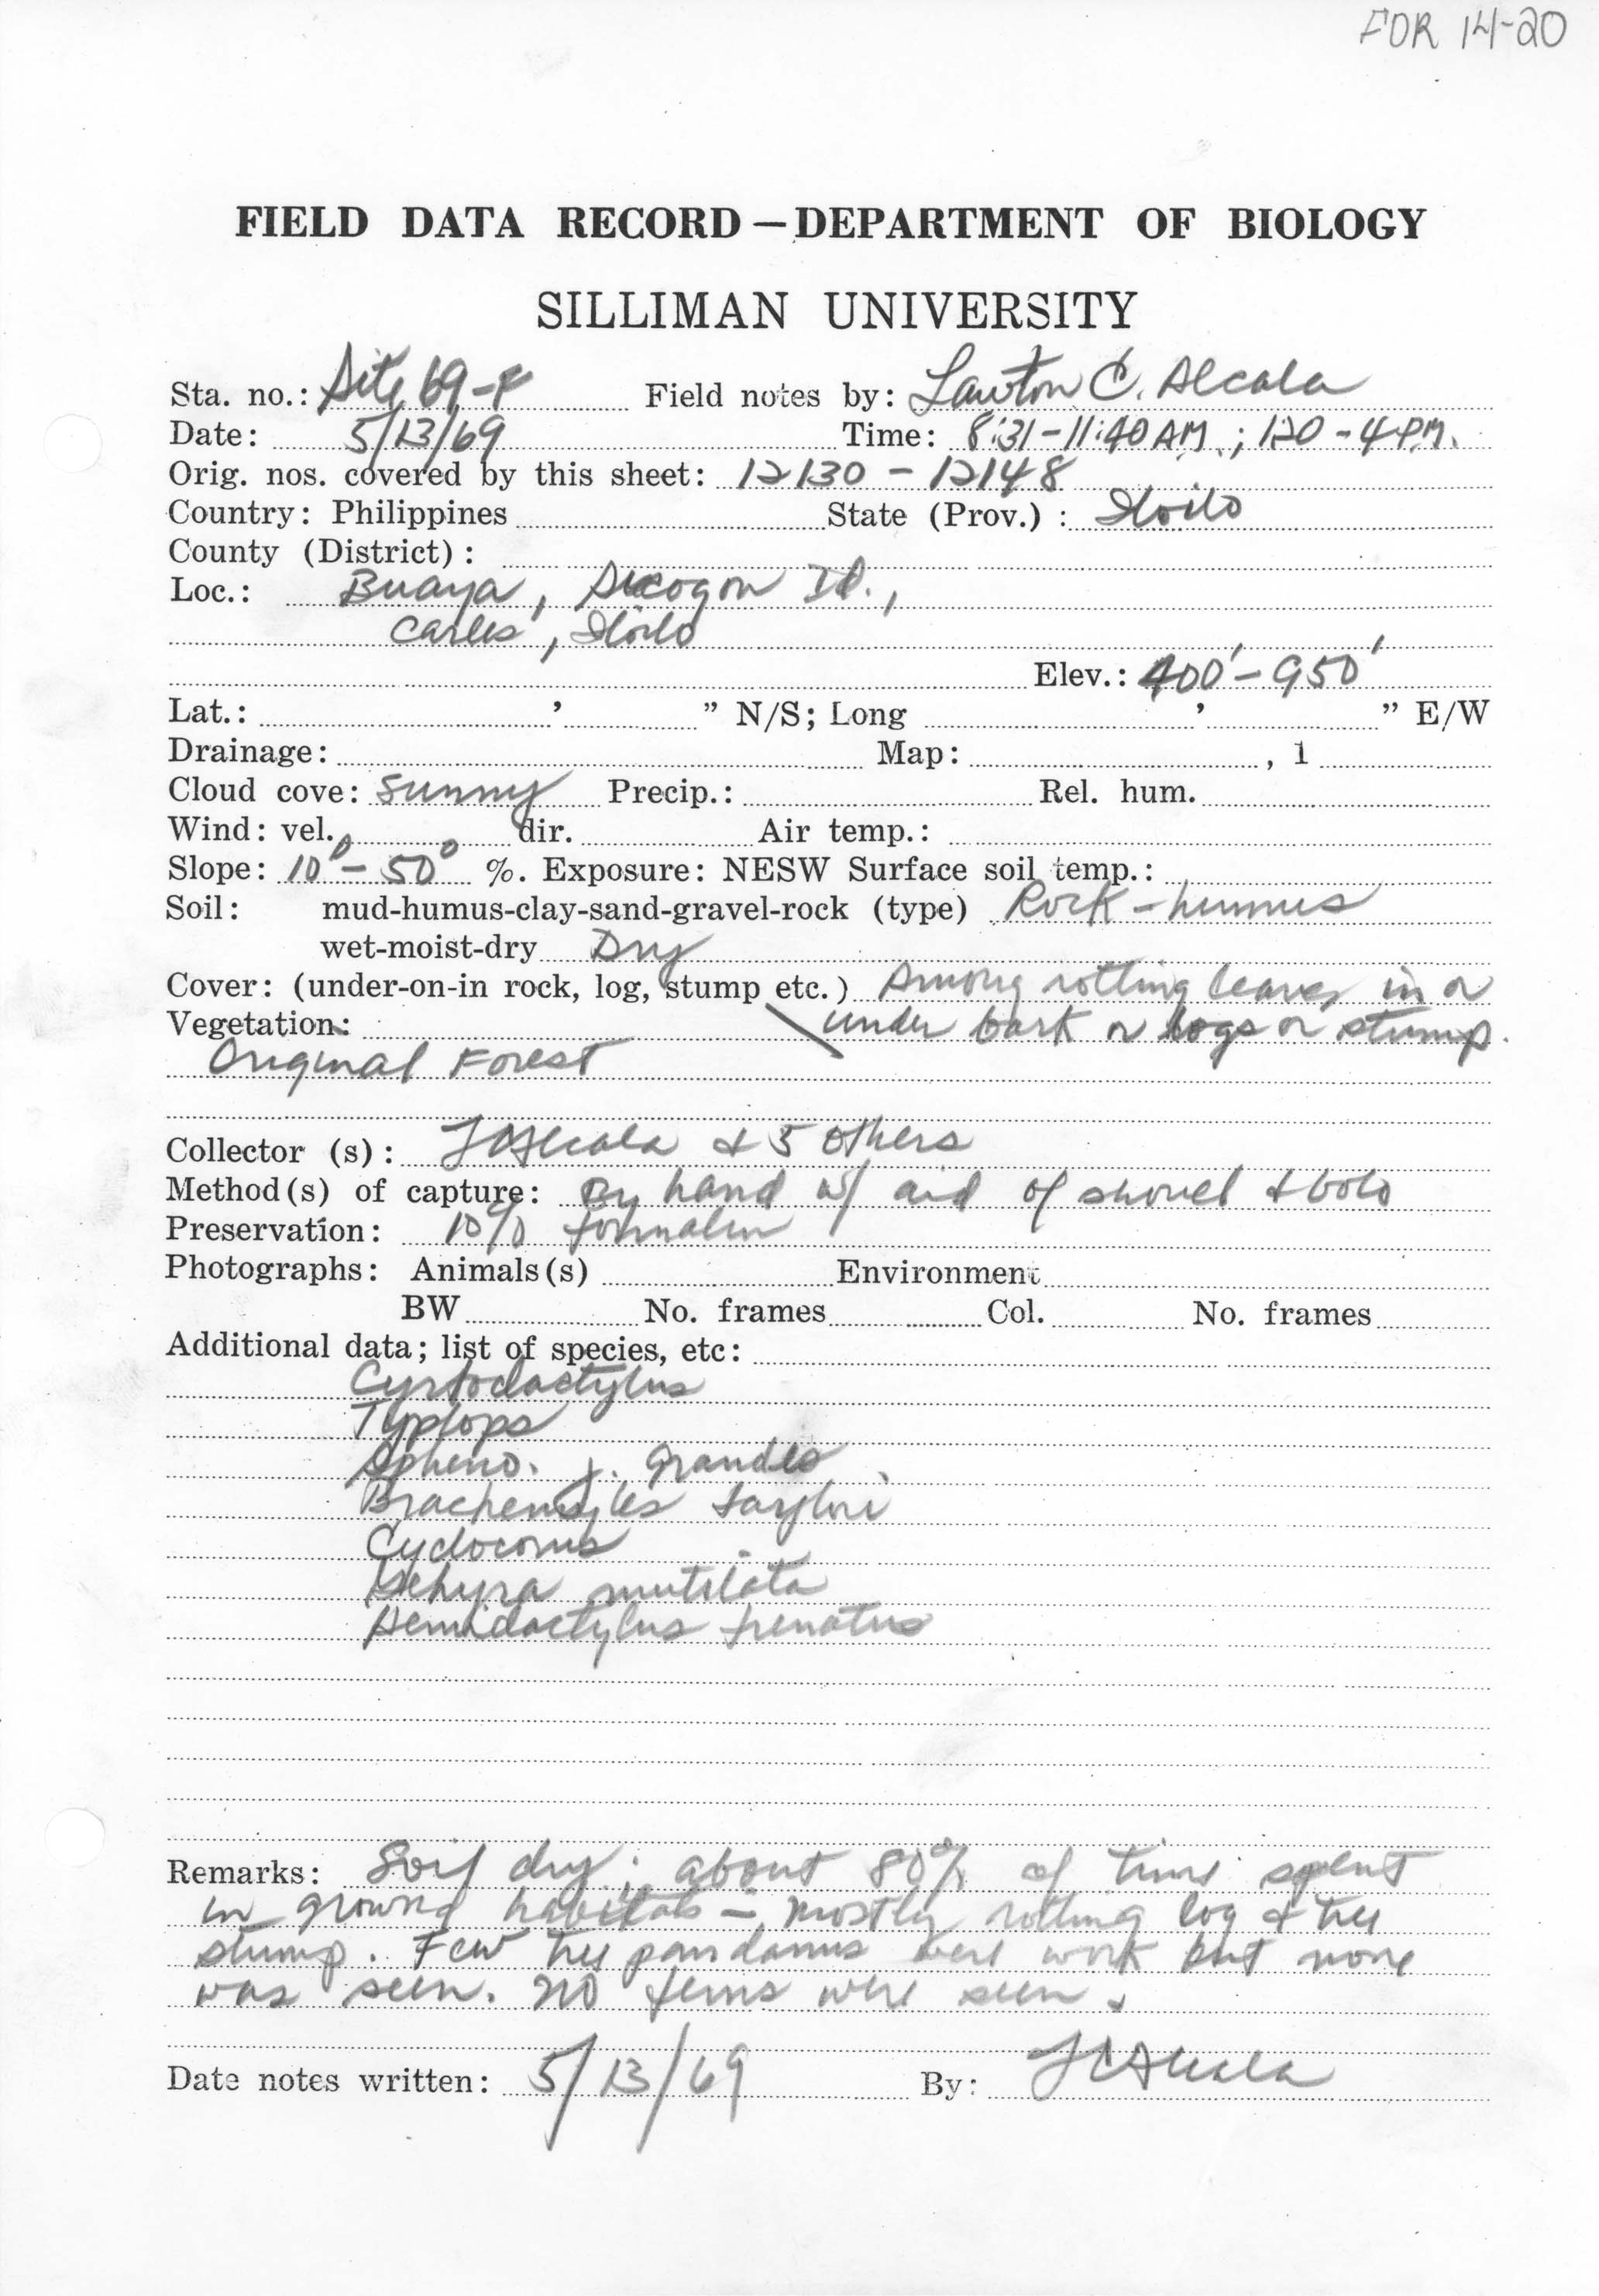 FOR 14-20
FIELD DATA RECORD — DEPARTMENT OF BIOLOGY
SILLIMAN UNIVERSITY
Sta. no.: Site 69-8 Field notes by: Lawton C. Alcala
Date: 5/13/69 Time: 8:31-11:40 AM; 1:20-4 PM.
Orig. nos. covered by this sheet: 12130 - 12148
Country: Philippines State (Prov.): Iloilo
County (District):
Loc.: Buaya, Sicogon Id.,
Carles, Iloilo
Elev.: 400'-950'
Lat.: ' " N/S; Long ' " E/W
Drainage: Map: , 1
Cloud cove: Sunny Precip.: Rel. hum.
Wind: vel. dir. Air temp.:
Slope: 10°-50° %. Exposure: NESW Surface soil temp.:
Soil: mud-humus-clay-sand-gravel-rock (type) Rock-humus
wet-moist-dry Dry
Cover: (under-on-in rock, log, stump etc.) Among rotting leaves, in or
Vegetation: under bark or logs or stump.
Original Forest
Collector (s): LCAlcala & 5 others
Method(s) of capture: By hand w/ aid of shovel & bolo
Preservation: 10% formalin
Photographs: Animals(s) Environment
BW No. frames Col. No. frames
Additional data; list of species, etc:
Cyrtodactylus
Typlops
Spheno. j. grandes
Brachemyles taylori
Cyclocorus
Gehyra mutilata
Hemidactylus frenatus
Remarks: Soil dry; about 80% of time spent
in ground habitats - mostly rotting log & tree
stump. Few tree pandanus were work but none
was seen. No ferns were seen.
Date notes written: 5/13/69 By: LCAlcala